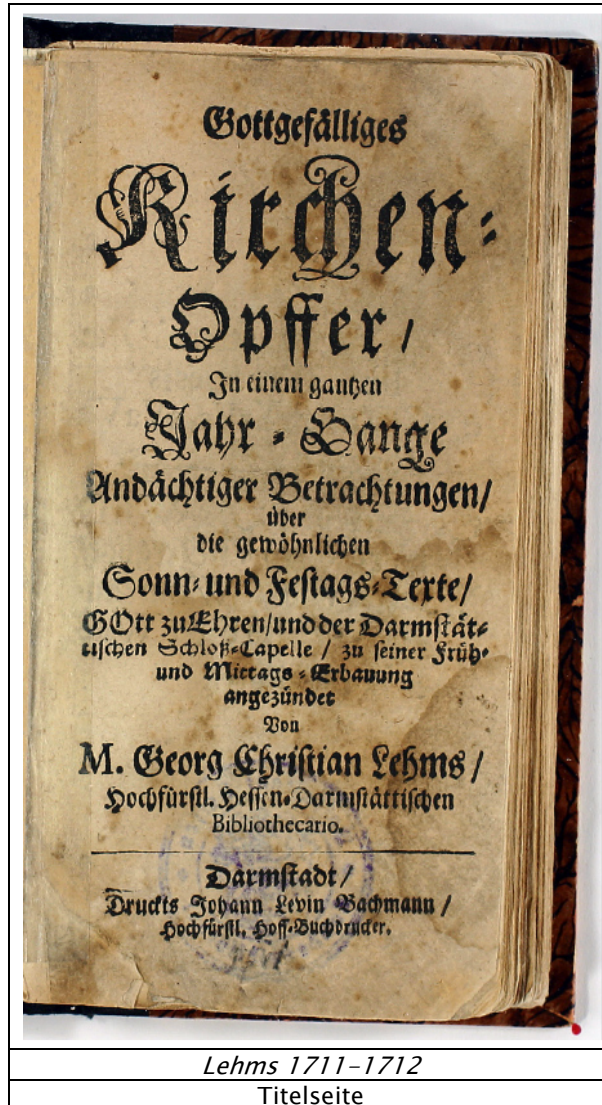 Gottgefälliges
Kirchen-
Opffer/
In einem gantzen
Jahr-Gange
Andächtiger Betrachtungen/
über
die gewöhnlichen
Sonn- und Festags-Texte/
GOtt zu Ehren/und der Darmstät-
tischen Schloß-Capelle / zu seiner Früh-
und Mittags-Erbauung
angezündet
Von
M. Georg Christian Lehms /
Hochfürstl. Hessen-Darmstättischen
Bibliothecario.
Darmstadt /
Druckts Johann Levin Bachmann /
Hochfürstl. Hoff-Buchdrucker.
Lehms 1711-1712
Titelseite